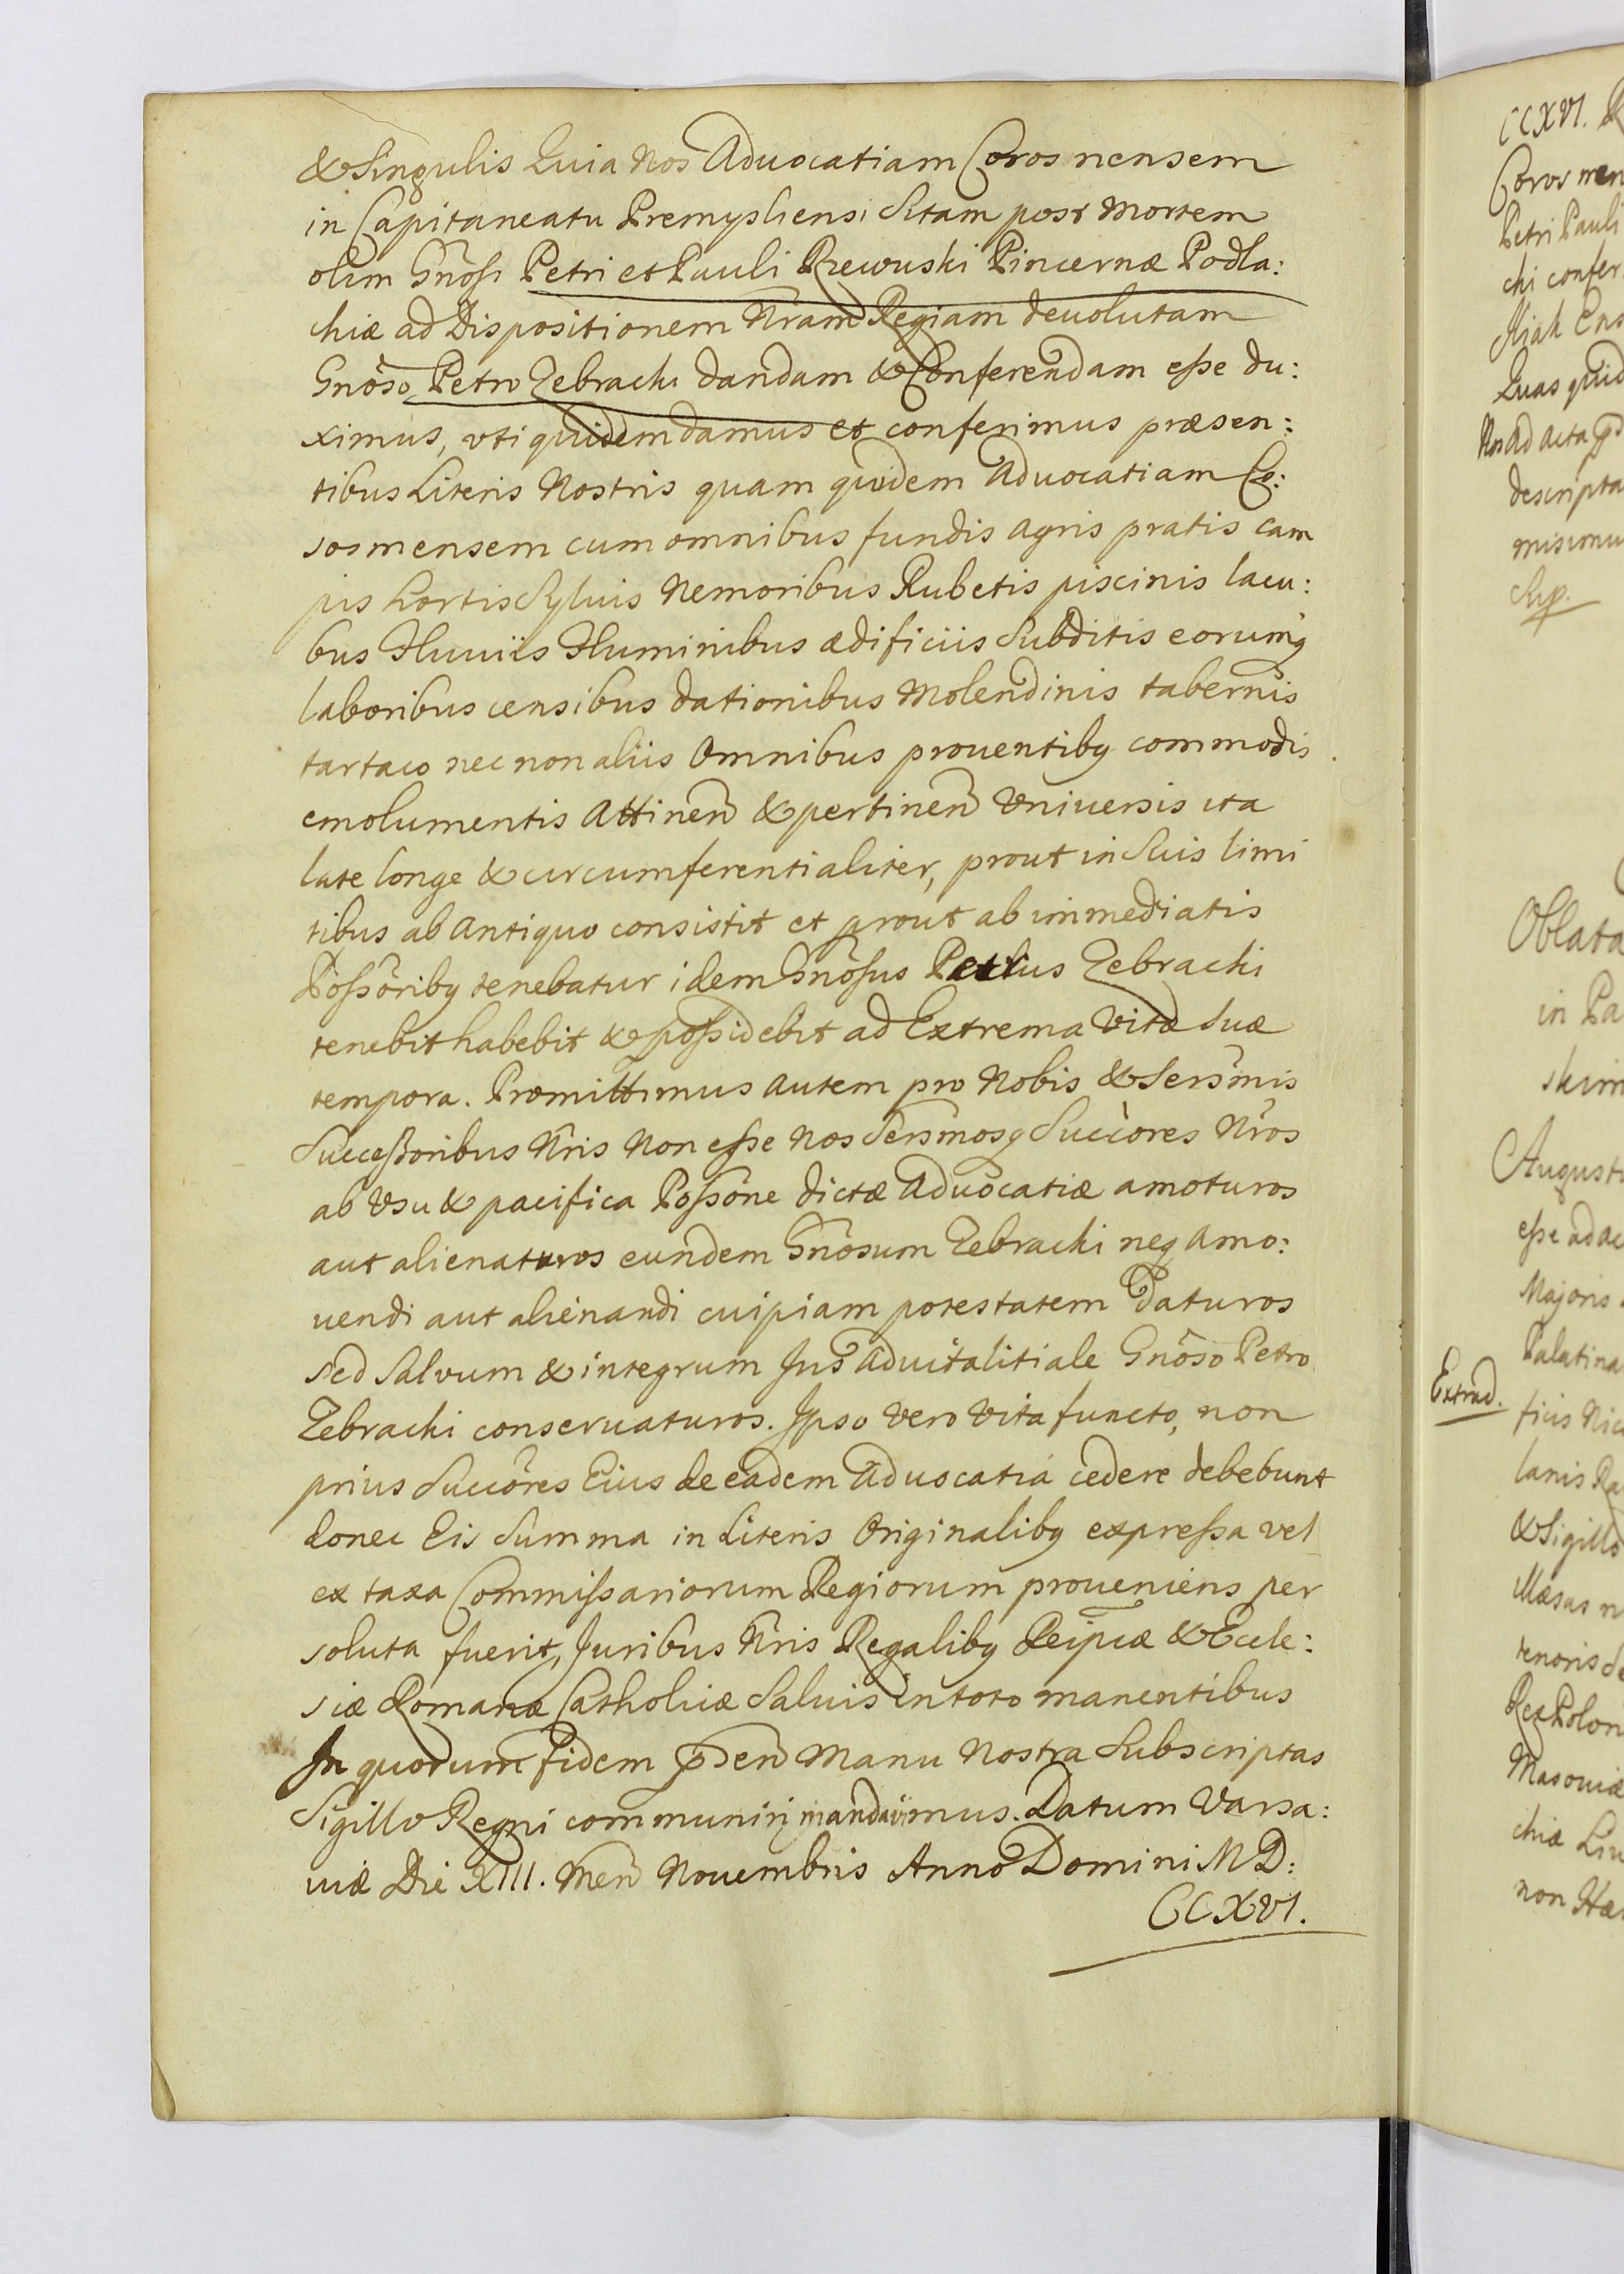 & Singulis Quia Nos Aduocatiam Corosnensem
in Capitaneatu Premysliensi Sitam post mortem
olim Gnosi Petri et Pauli Rzewuski Pincernæ Podla:
chiæ ad Dispositionem Nram Regiam deuolutam
Gnoso Petro Zebracki dandam & Conferendam esse du:
ximus, vti quidem damus et conferimus præsen:
tibus Literis Nostris quam quidem Aduocatiam Co:
rosmensem cum omnibus fundis agris pratis cam
pis hortis Syluis Nemoribus Rubetis piscinis lacu:
bus Fluuiis Fluminibus ædificiis Subditis eorumq
laboribus censibus dationibus Molendinis tabernis
tartaco nec non aliis Omnibus prouentibq commodis
emolumentis Attinen & pertinen Vniuersis ita
late longe & circumferentialiter, prout in Suis limi
tibus ab Antiquo consistit et prout ab immediatis
Possoribq tenebatur idem Gnosus Petrus Zebracki
tenebit habebit & possidebit ad Extrema Vitæ Suæ
tempora. Promittimus autem pro Nobis & Sersmis
Successoribus Nris Non esse Nos Sersmosq Succores Nros
ab Vsu & pacifica Possone dictæ Aduocatiæ amoturos
aut alienaturos eundem Gnosum Zebracki neq Amo:
uendi aut alienandi cuipiam potestatem Daturos
sed Salvum & integrum Jus Aduitalitiale Gnoso Petro
Zebracki conseruaturos. Ipso Vero Vita functo, non
prius Succores Eius de eadem Aduocatia cedere debebunt
donec Eis Summa in Literis Originalibq expressa vel
ex taxa Commissariorum Regiorum proueniens per
soluta fuerit, Juribus Nris Regalibq Reipcæ & Eccle:
siæ Romanæ Catholicæ Saluis in toto manentibus
In quorum fidem psen Manu Nostra Subscriptas
Sigillo Regni communiri mandauimus. Datum Varsa:
uiæ Die XIII. Men Nouembris Anno Domini MD:
CCXVI.
CCXVI.
Petri Pauli
chi confer
Quas quid
Nos ad acta
descripta
misimu
Oblata
in Pa
skim
Augustu
esse ad ac
Majoris
Palatina
Extrad.
ficis Nic
lanis Ra
& Sigillo
tenoris Se
Rex Polon
Masouiæ
chiæ Liu
non